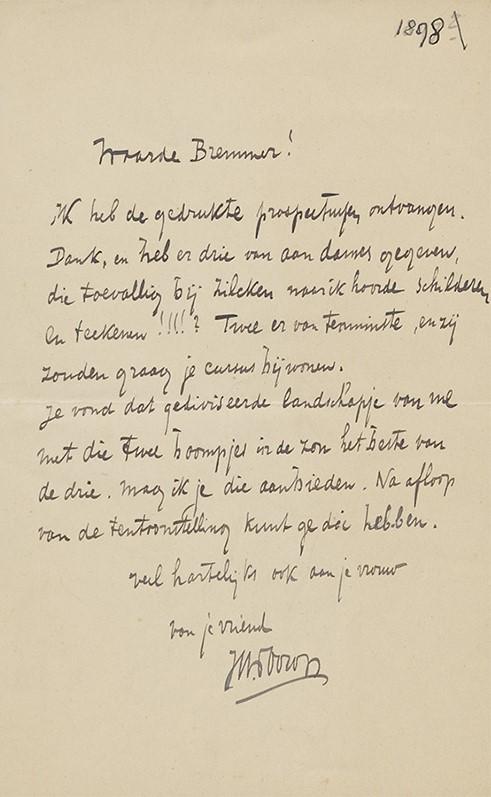 1898
Waarde Bremmer!
Ik heb de gedrukte prospectussen ontvangen.
Dank, en heb er drie van aan dames gegeven,
die toevallig bij Zilcken naar ik hoorde schilderen
en teekenen !!!!? Twee er van tenminste, en zij
zouden graag je cursus bijwonen.
Je vond dat gediviseerde landschapje van me
met die twee boompjes in de zon het beste van
de drie. Mag ik je die aanbieden. Na afloop
van de tentoonstelling kunt ge die hebben.
veel hartelijks ook aan je vrouw
van je vriend
JThToorop